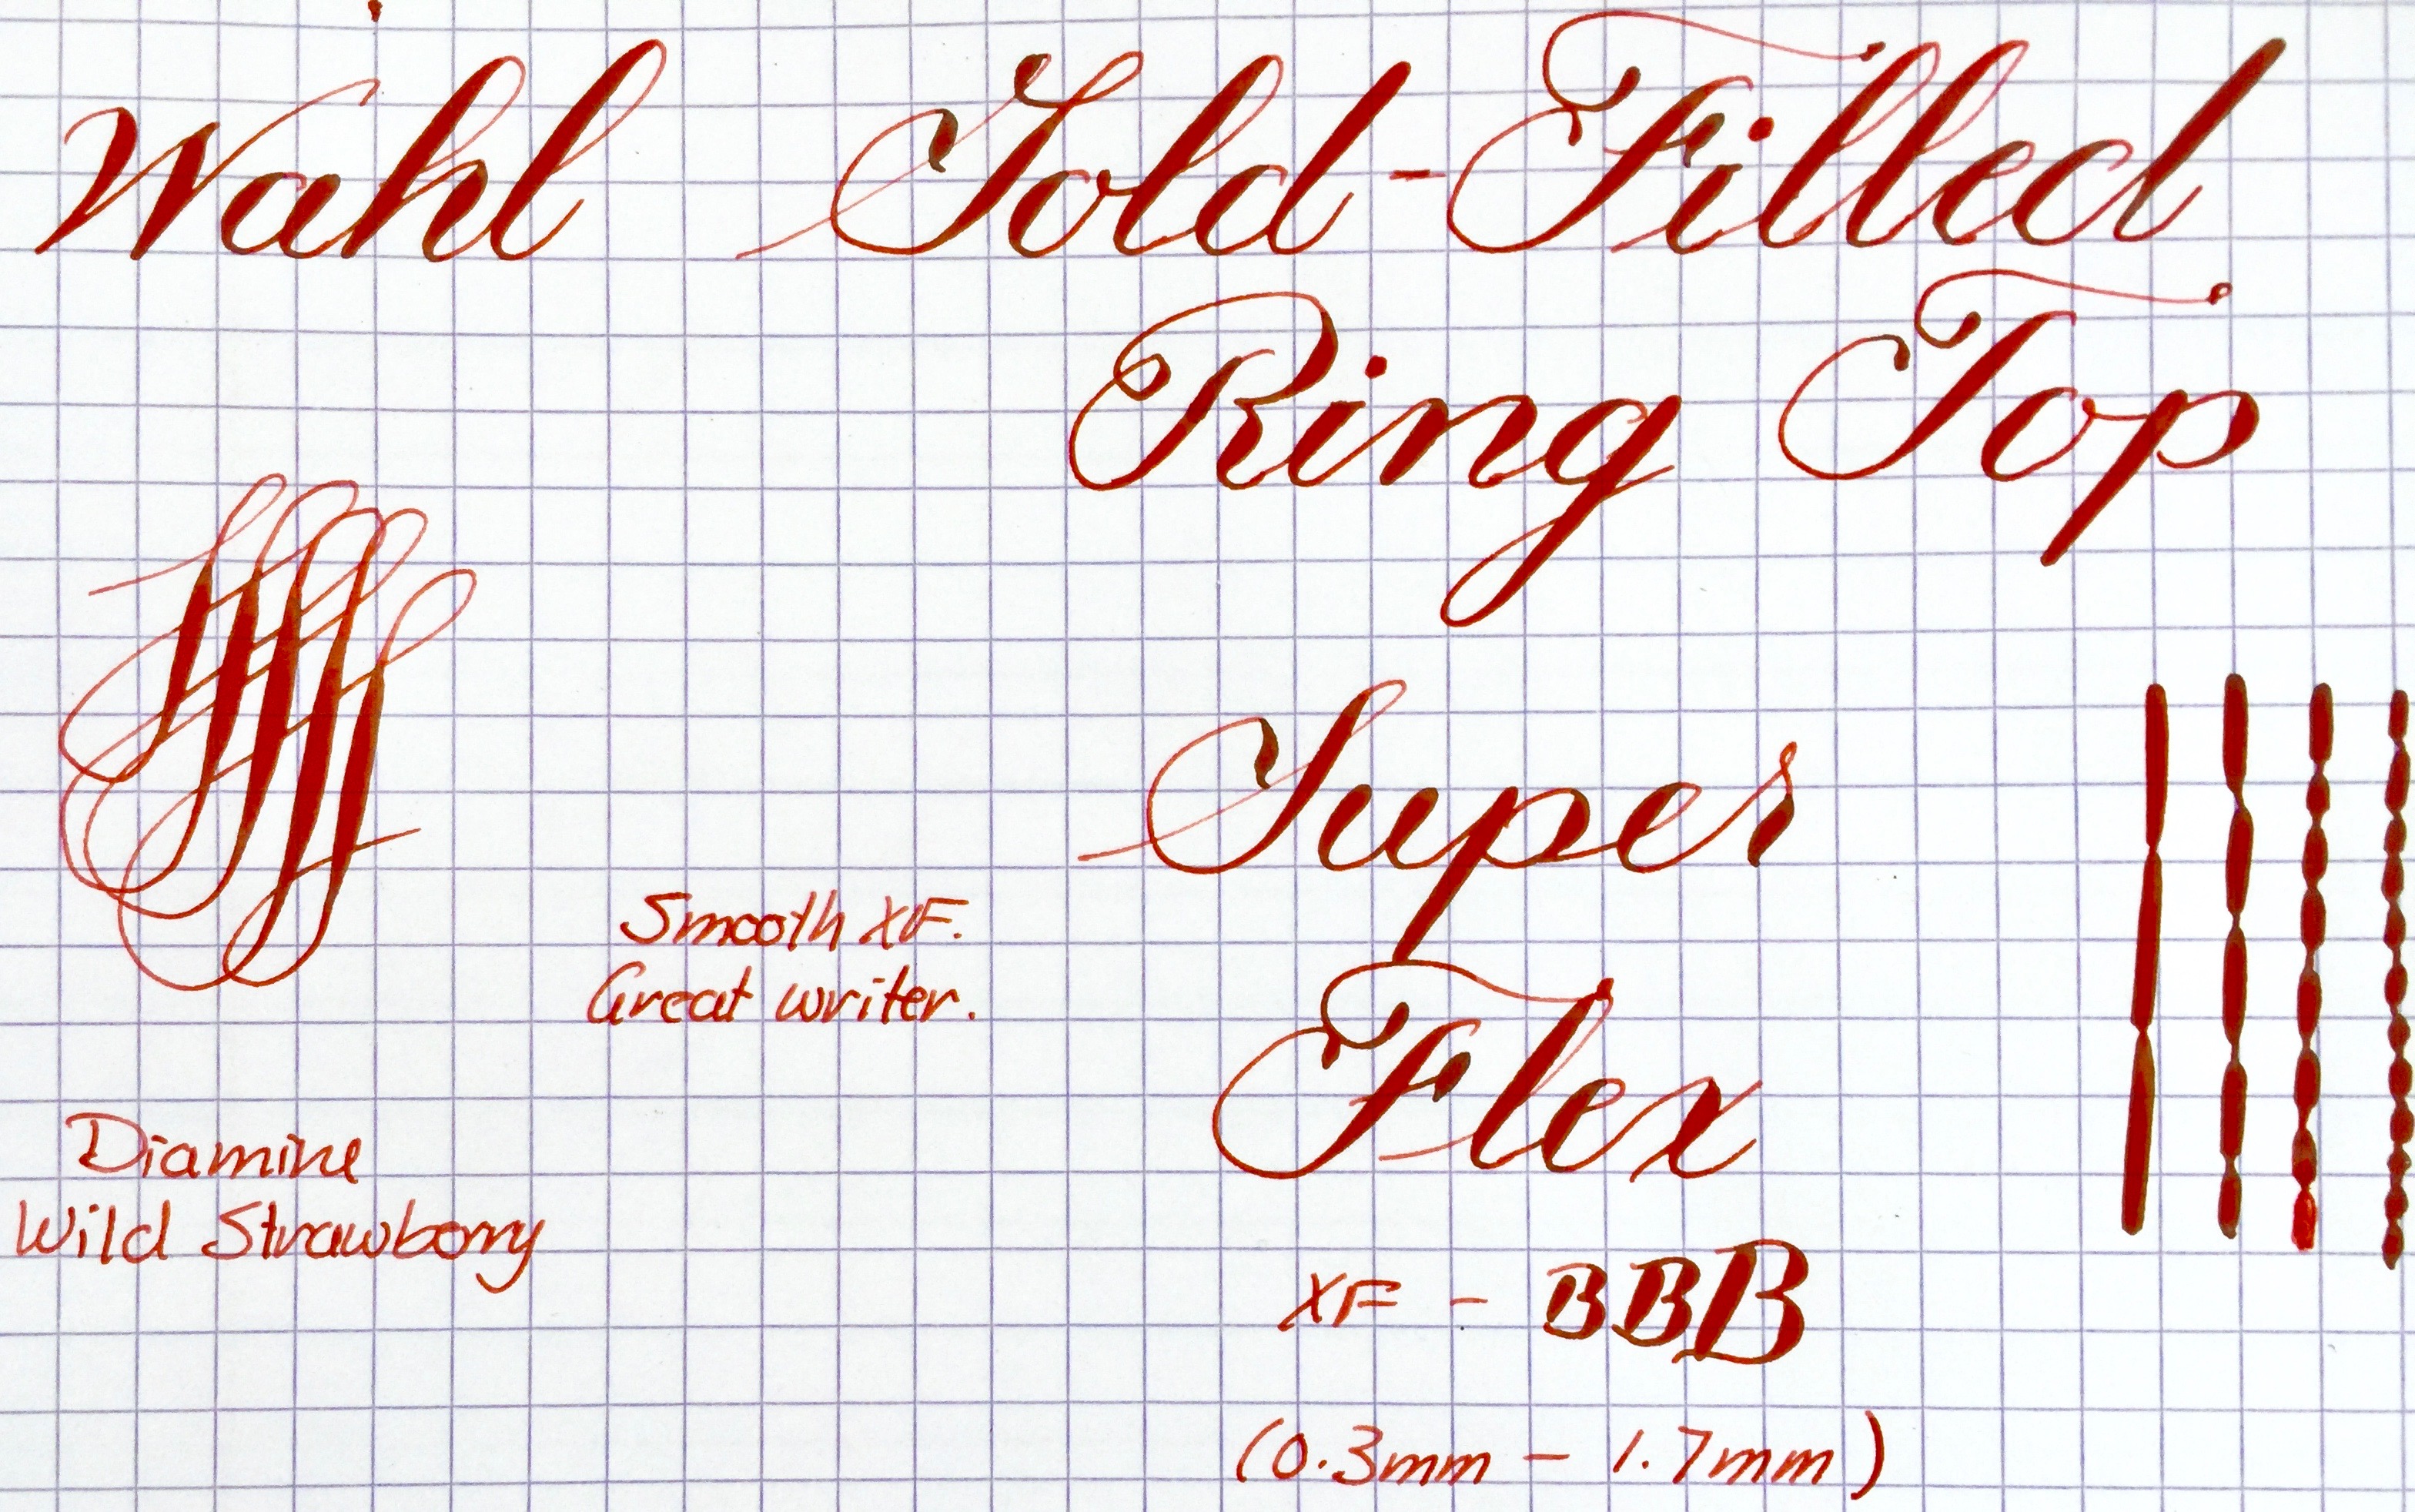 Wahl Gold-Filled
Ring Top
Super
Smooth XF.
Great writer.
Flex
Diamine
Wild Strawberry
XF - BBB
(0.3mm - 1.7mm)